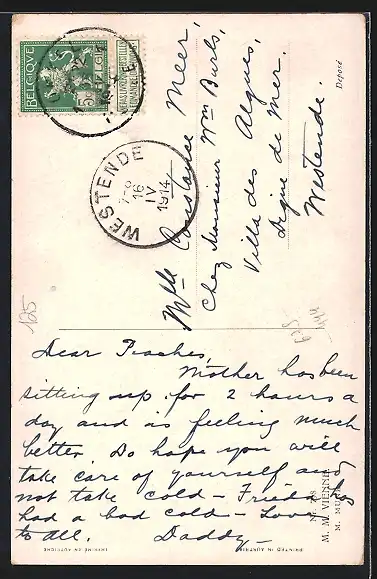 BELGIQUE
5
WESTENDE
16
IV
1914
Mlle Constance Meer,
Chez Monsieur Wm Burls,
Villa des Algues,
Digue de Mer.
Westende.
Déposé
125
Dear Peaches,
Mother has been
sitting up for 2 hours a
day and is feeling much
better. Do hope you will
take care of yourself and
not take cold – Frieda has
had a bad cold – Love
to all. Daddy –
M. M. VIENNE
PRINTED IN AUSTRIA
IMPRIMÉ EN AUTRICHE